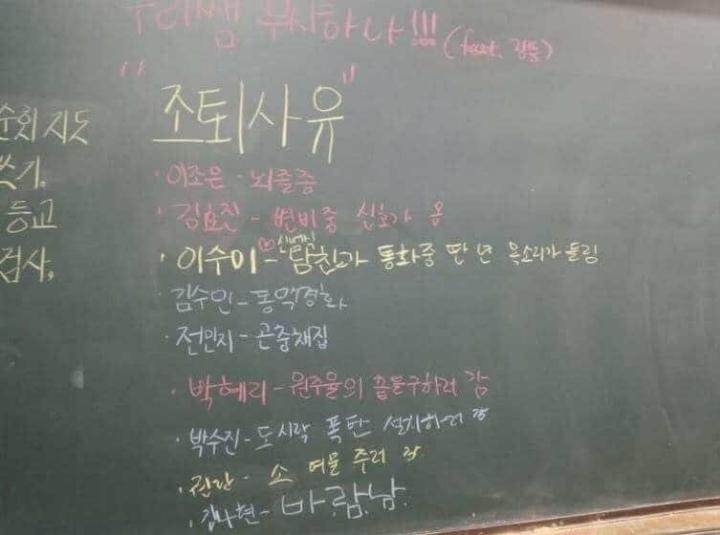 우리쌤 무시하나!!! (feat. 경듬)
"조퇴사유"
순회지도
쓰기.
등교
검사.
· 이조은 - 뇌졸증
· 김효진 - 변비중 신호가 옴
· 이수미 - ♡남친과 통화중 딴 년 목소리가 들림
김수민 - 동맥경화
· 전민지 - 곤충채집
· 박혜리 - 원주율의 끝을구하러 감
· 박수진 - 도시락 폭탄 설치하러 감
· 권란 - 소 여물 주러 감
· 김나현 - 바람남.